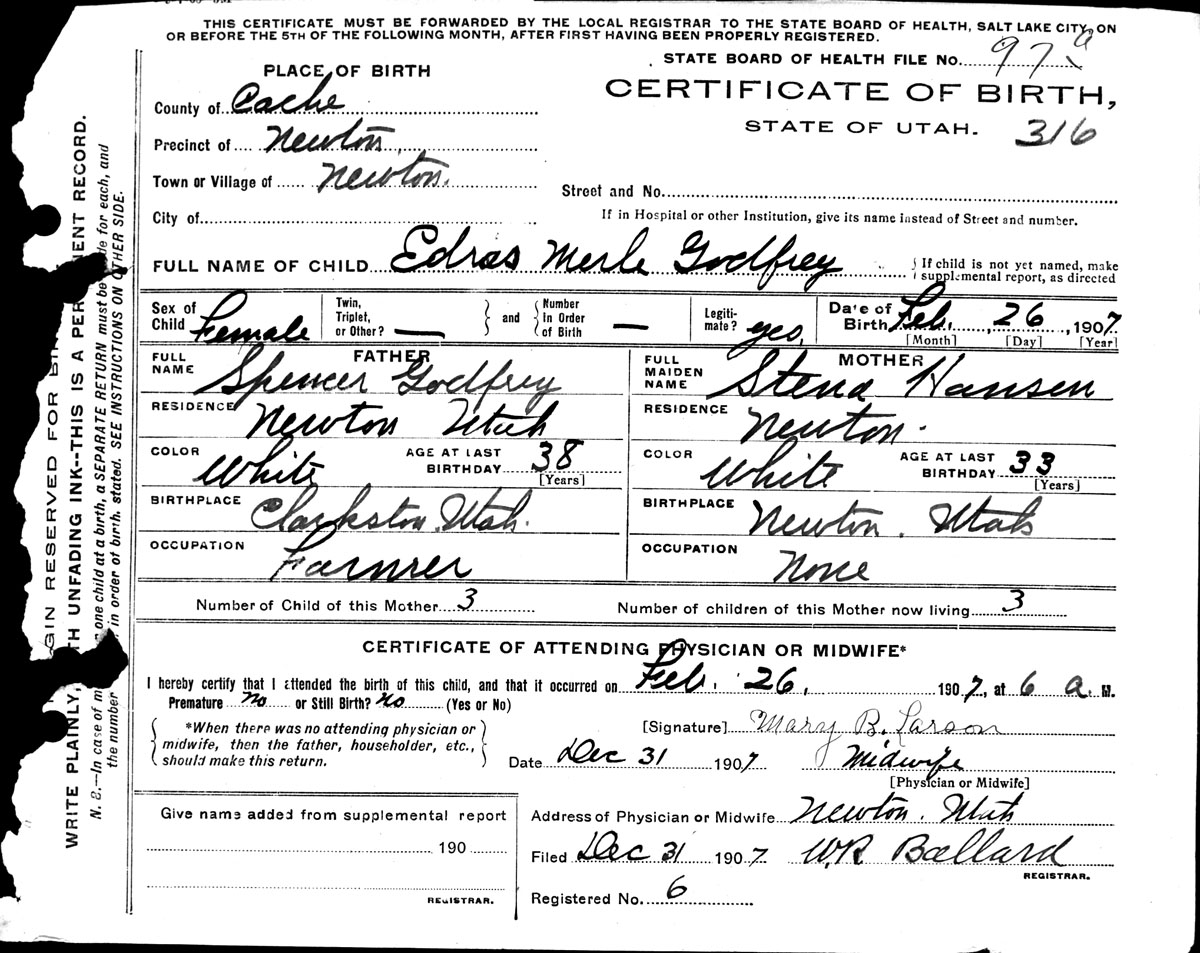 THIS CERTIFICATE MUST BE FORWARDED BY THE LOCAL REGISTRAR TO THE STATE BOARD OF HEALTH, SALT LAKE CITY, ON
OR BEFORE THE 5TH OF THE FOLLOWING MONTH, AFTER FIRST HAVING BEEN PROPERLY REGISTERED.
STATE BOARD OF HEALTH FILE No. 97 a
PLACE OF BIRTH
CERTIFICATE OF BIRTH,
STATE OF UTAH. 316
County of Cache
Precinct of Newton
Town or Village of Newton.
Street and No.
City of
If in Hospital or other Institution, give its name instead of Street and number.
FULL NAME OF CHILD Edras Merle Godfrey
{ If child is not yet named, make
supplemental report, as directed
Sex of Child Female
Twin, Triplet, or Other? —
and
Number In Order of Birth —
Legiti-mate? yes
Date of Birth Feb. 26, 1907
[Month] [Day] [Year]
FATHER
FULL NAME Spencer Godfrey
RESIDENCE Newton Utah
COLOR White
AGE AT LAST BIRTHDAY 38
[Years]
BIRTHPLACE Clarkston Utah.
OCCUPATION Farmrer
MOTHER
FULL MAIDEN NAME Stena Hansen
RESIDENCE Newton.
COLOR White
AGE AT LAST BIRTHDAY 33
[Years]
BIRTHPLACE Newton. Utah
OCCUPATION None
Number of Child of this Mother 3
Number of children of this Mother now living 3
CERTIFICATE OF ATTENDING PHYSICIAN OR MIDWIFE*
I hereby certify that I attended the birth of this child, and that it occurred on Feb. 26, 1907, at 6 a M.
Premature No or Still Birth? No (Yes or No)
*When there was no attending physician or
midwife, then the father, householder, etc.,
should make this return.
[Signature] Mary B. Larson
Date Dec 31 1907 Midwife
[Physician or Midwife]
Give name added from supplemental report
190
REGISTRAR.
Address of Physician or Midwife Newton. Utah
Filed Dec 31 1907 W R Ballard
REGISTRAR.
Registered No. 6
GIN RESERVED FOR
WRITE PLAINLY, TH UNFADING INK--THIS IS A PER NENT RECORD.
N. B.—In case of m one child at a birth, a SEPARATE RETURN must be de for each, and
the number in order of birth, stated. SEE INSTRUCTIONS ON OTHER SIDE.